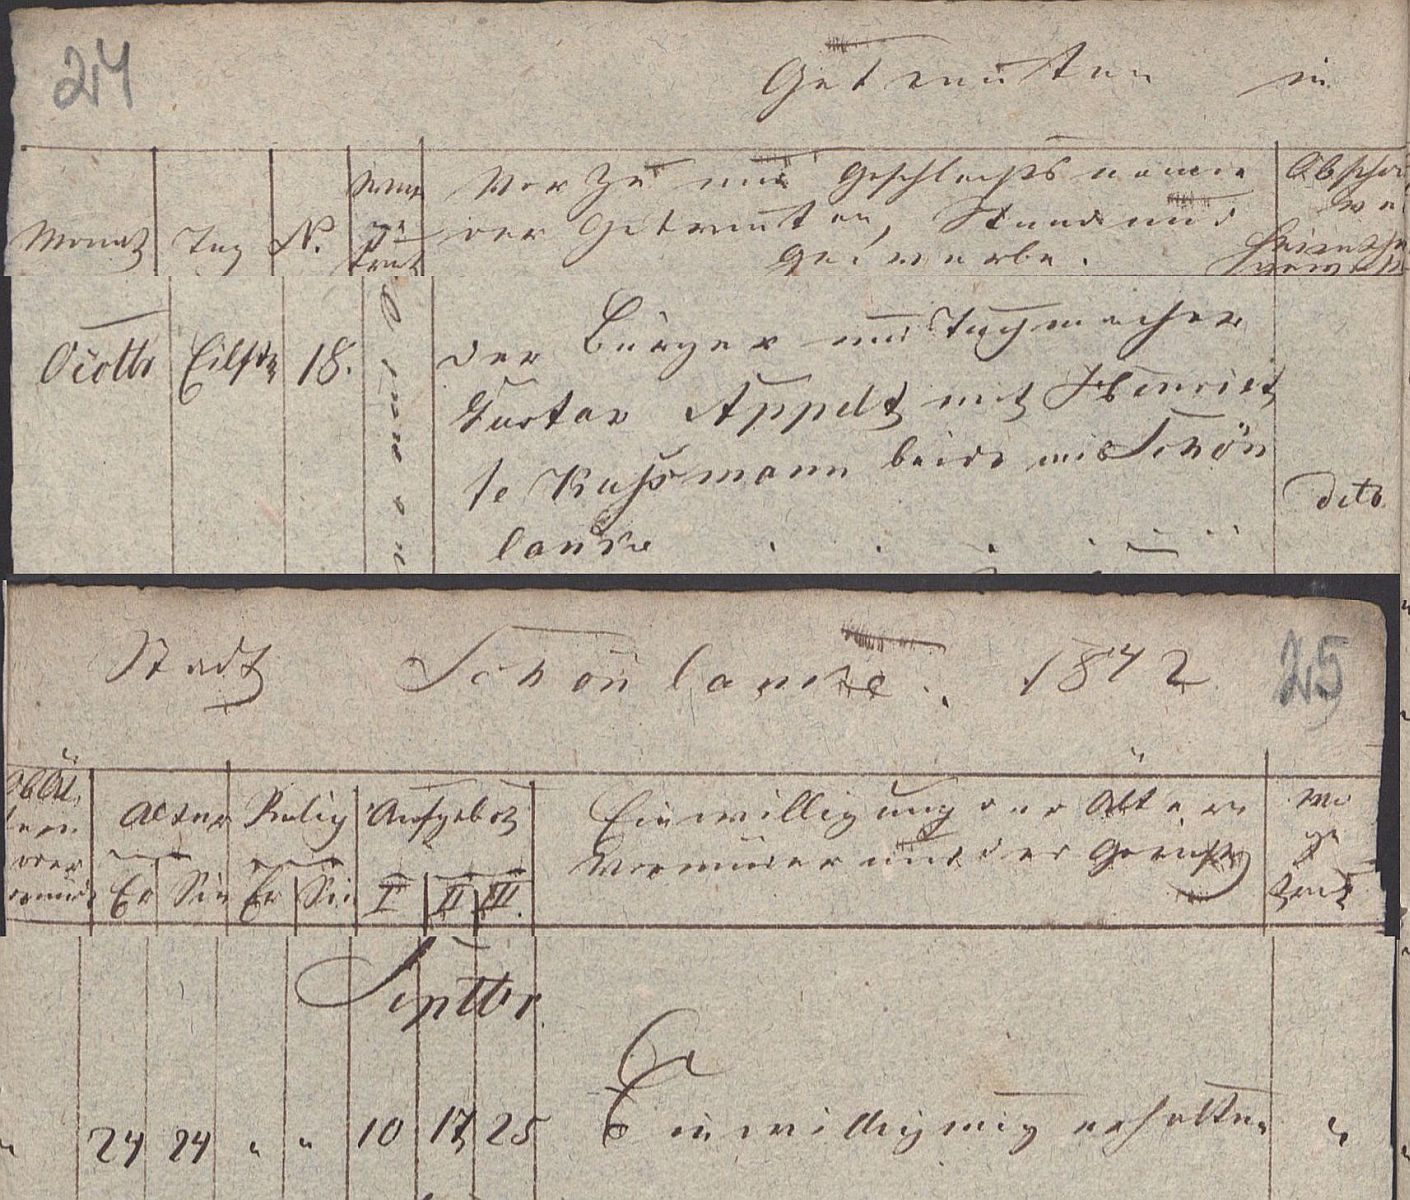 24
Getrauten in
Vor Zu und Geschlechts name
Monat Tag N. der Getrauten, Stand und
Gewerbe.
Octbr Eilfte 18. der Bürger und Tuchmacher
Gustav Appelt mit Henriet
te Russmann beide aus Schön
lanke
dito
Stadt Schönlanke. 1842 25
Alter Relig Aufgebot Einwilligung der Ältern
Vormünder und der Gericht
Er Sie Er Sie I II III
Septbr.
24 24 " " 10 17 25 Einwilligung erhalten "